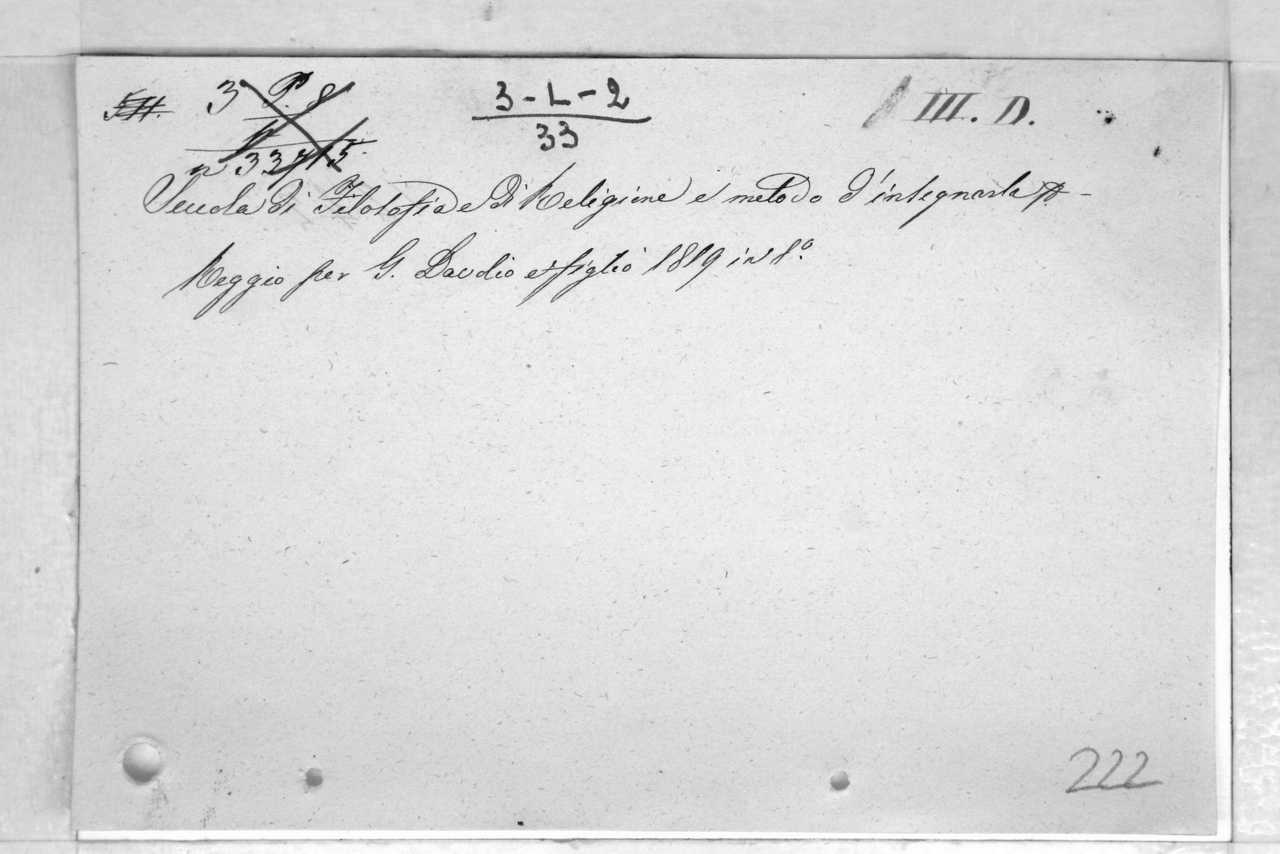 3 P. 8
3-L-2
33
III. D.
n 33
Scuola di Filosofia e di Religione e metodo d'insegnarla
Reggio per G. Davolio e figlio 1819 in 8.º
222